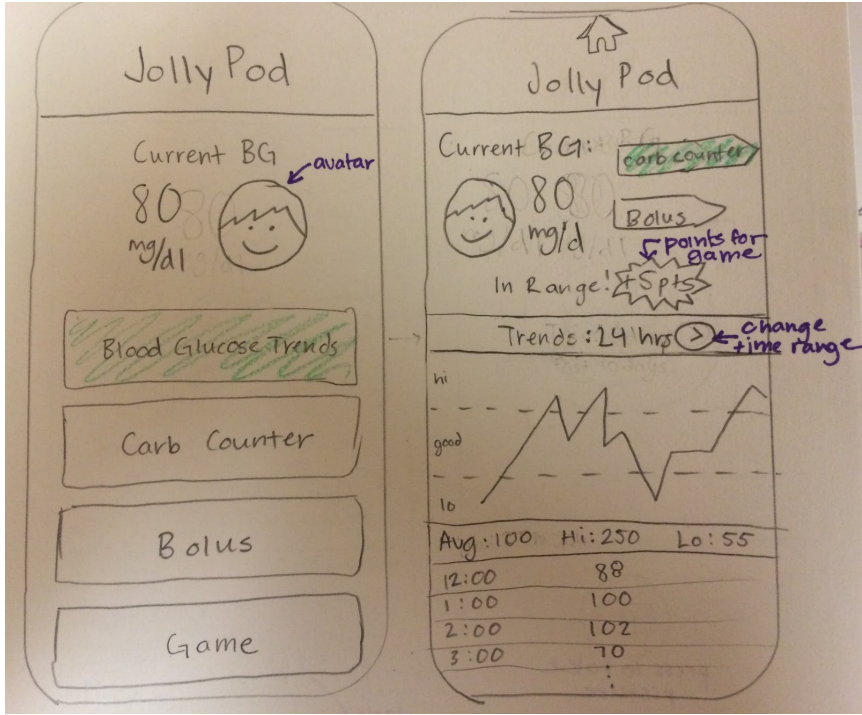 Jolly Pod
Current BG
avatar
80
mg/dl
Blood Glucose Trends
Carb Counter
Bolus
Game
Jolly Pod
Current BG:
carb counter
80
mg/d
Bolus
points for
game
In Range! +5pts
Trends: 24 hrs >
change
time range
hi
good
lo
Avg: 100 Hi: 250 Lo: 55
12:00 88
1:00 100
2:00 102
3:00 70